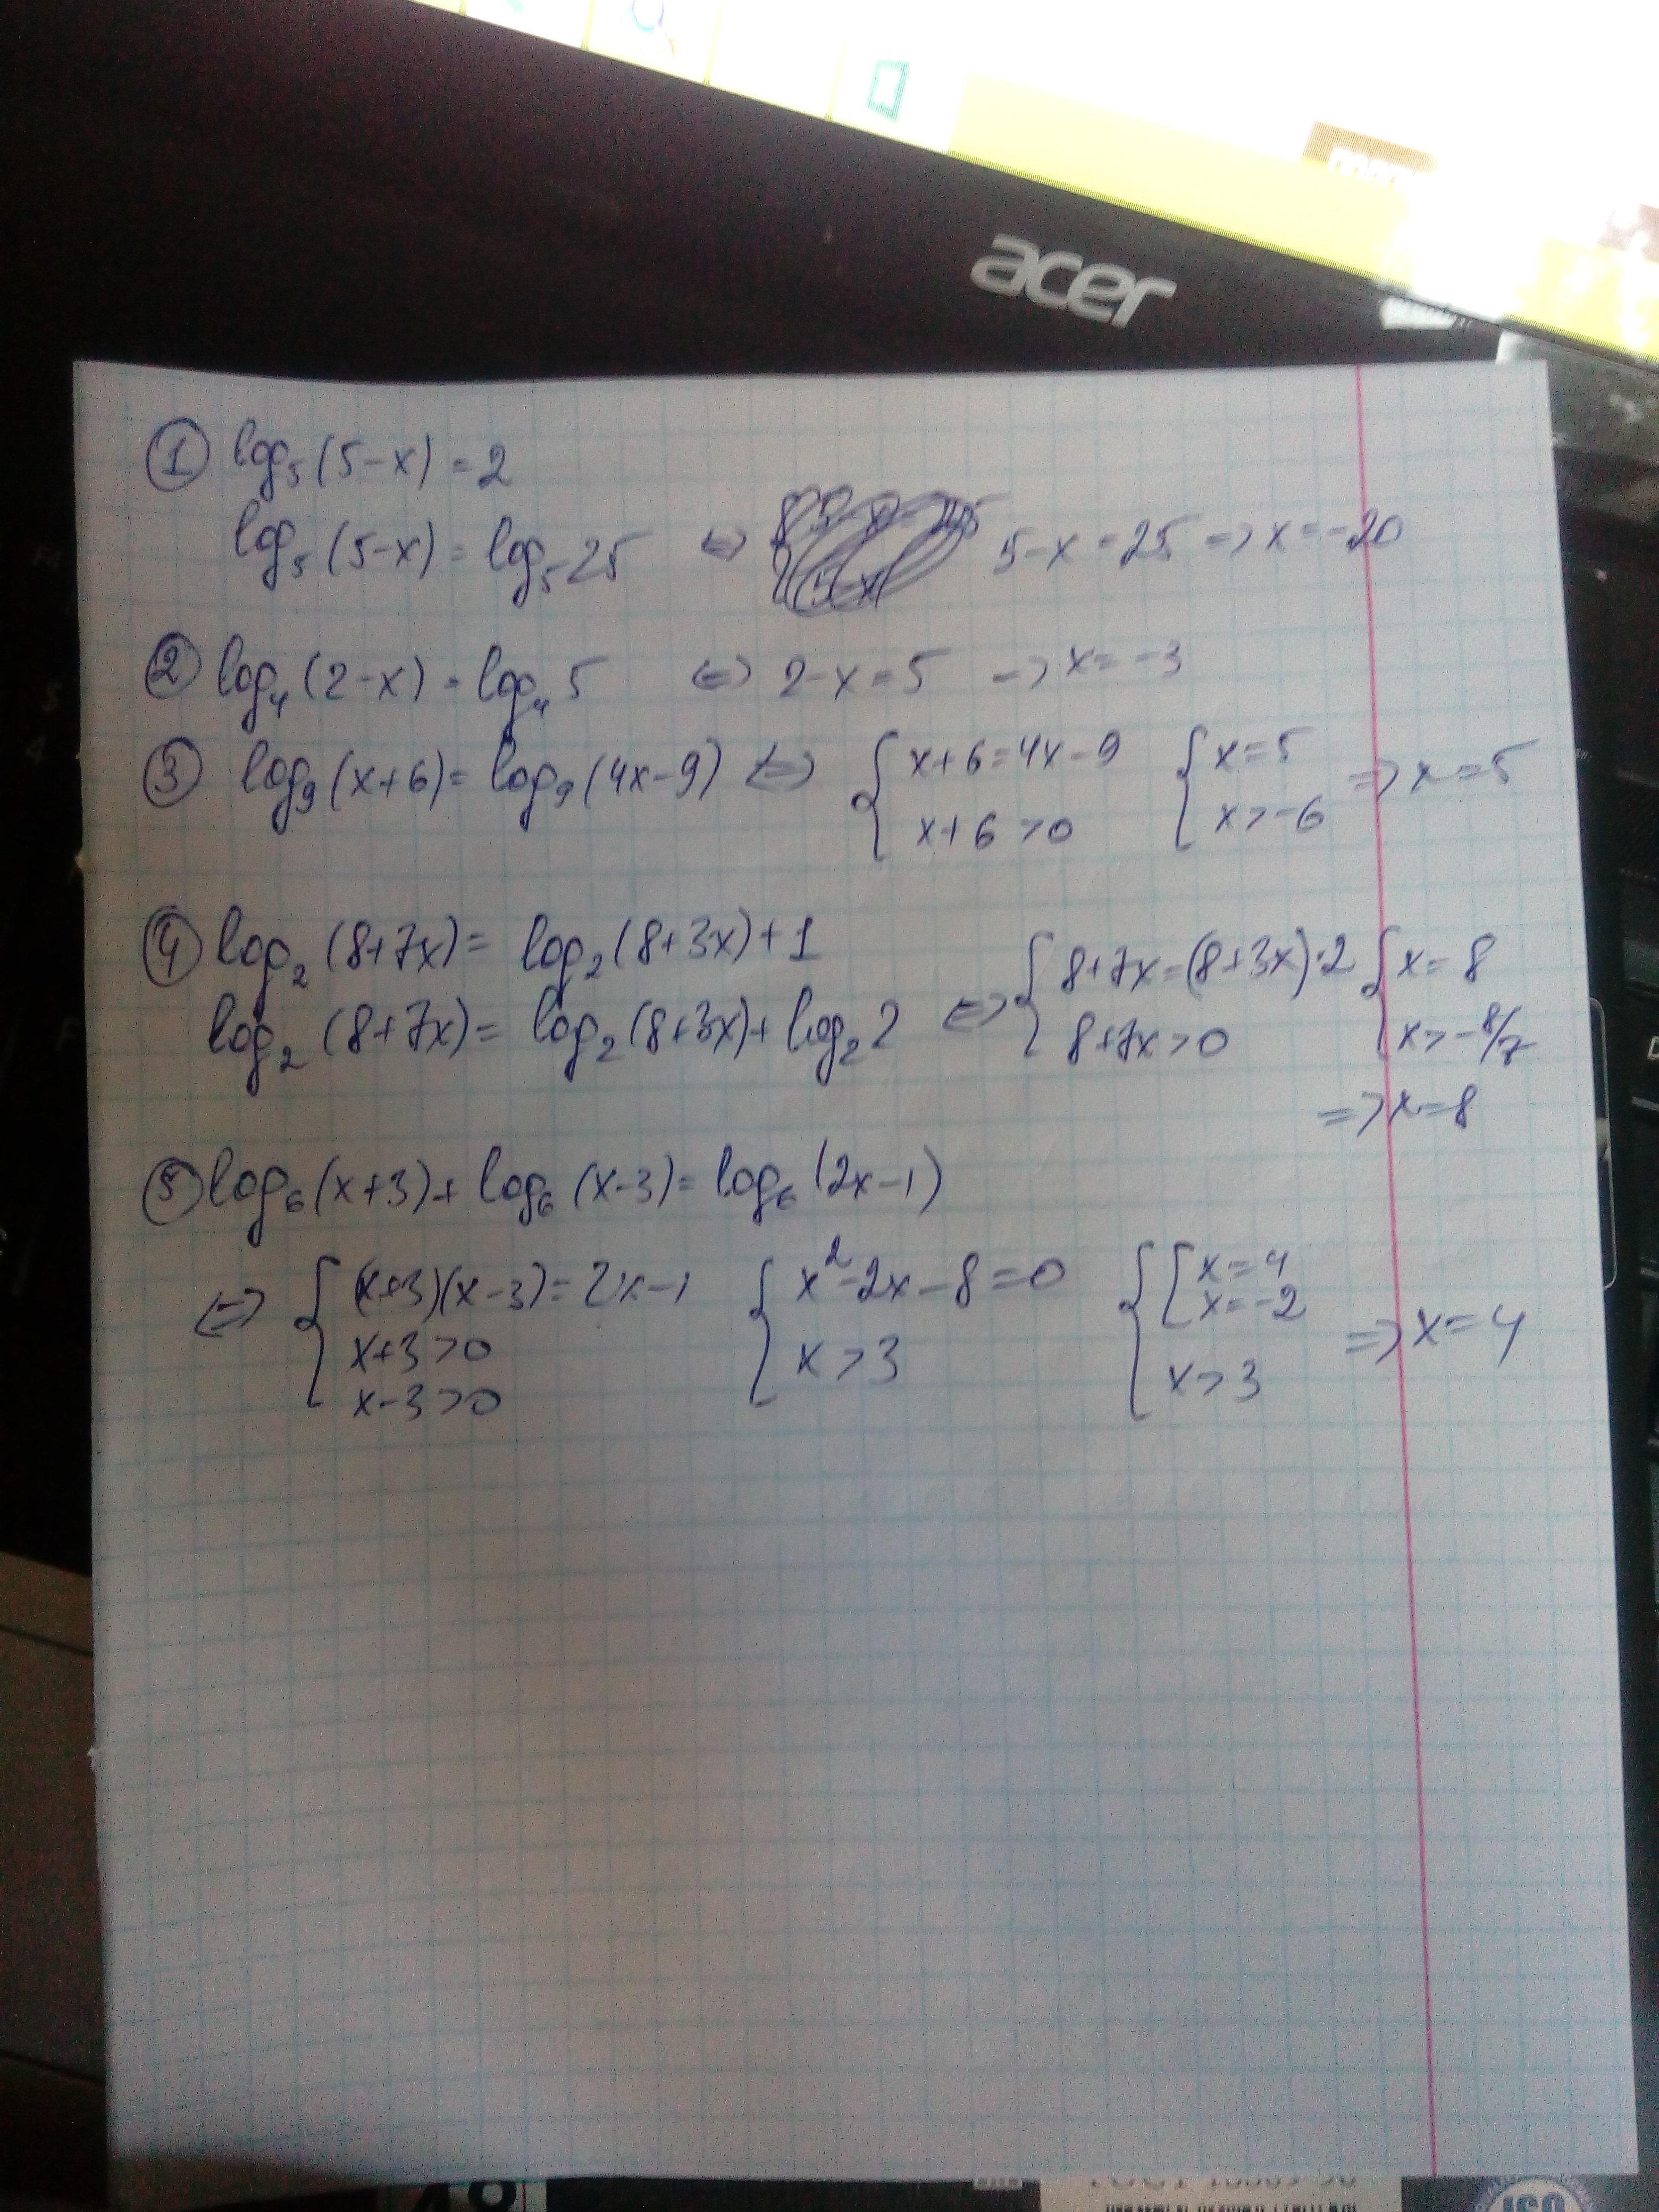 acer
① log₅(5-x) = 2
log₅(5-x) = log₅25 ⇔ 5-x=25 => x=-20
② log₄(2-x) = log₄5 ⇔ 2-x=5 => x=-3
③ log₉(x+6) = log₉(4x-9) ⇔ { x+6=4x-9 { x=5 => x=5
x+6>0 x>-6
④ log₂(8+7x) = log₂(8+3x)+1
log₂(8+7x) = log₂(8+3x)+log₂2 ⇔ { 8+7x=(8+3x)·2 { x=8
8+7x>0 x>-8/7
=> x=8
⑤ log₆(x+3)+log₆(x-3)=log₆(2x-1)
⇔ { (x+3)(x-3)=2x-1 { x²-2x-8=0 { [ x=4
x=-2
x+3>0 x>3 x>3 => x=4
x-3>0